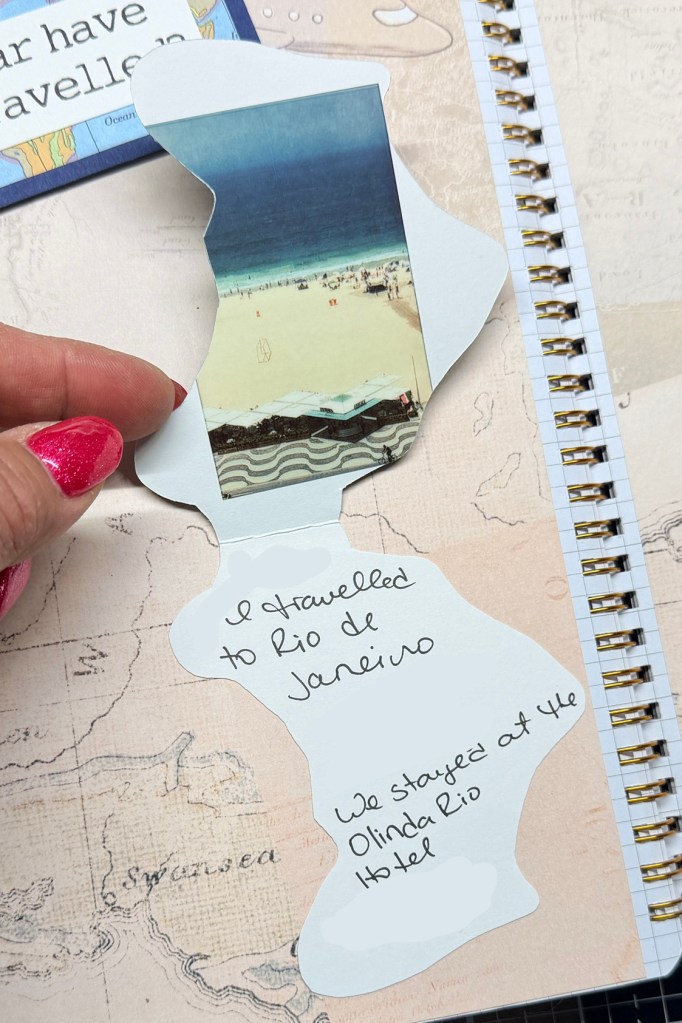 ar have
avelle
Ocean
I travelled
to Rio de
Janeiro
We stayed at the
Olinda Rio
Hotel
Swansea